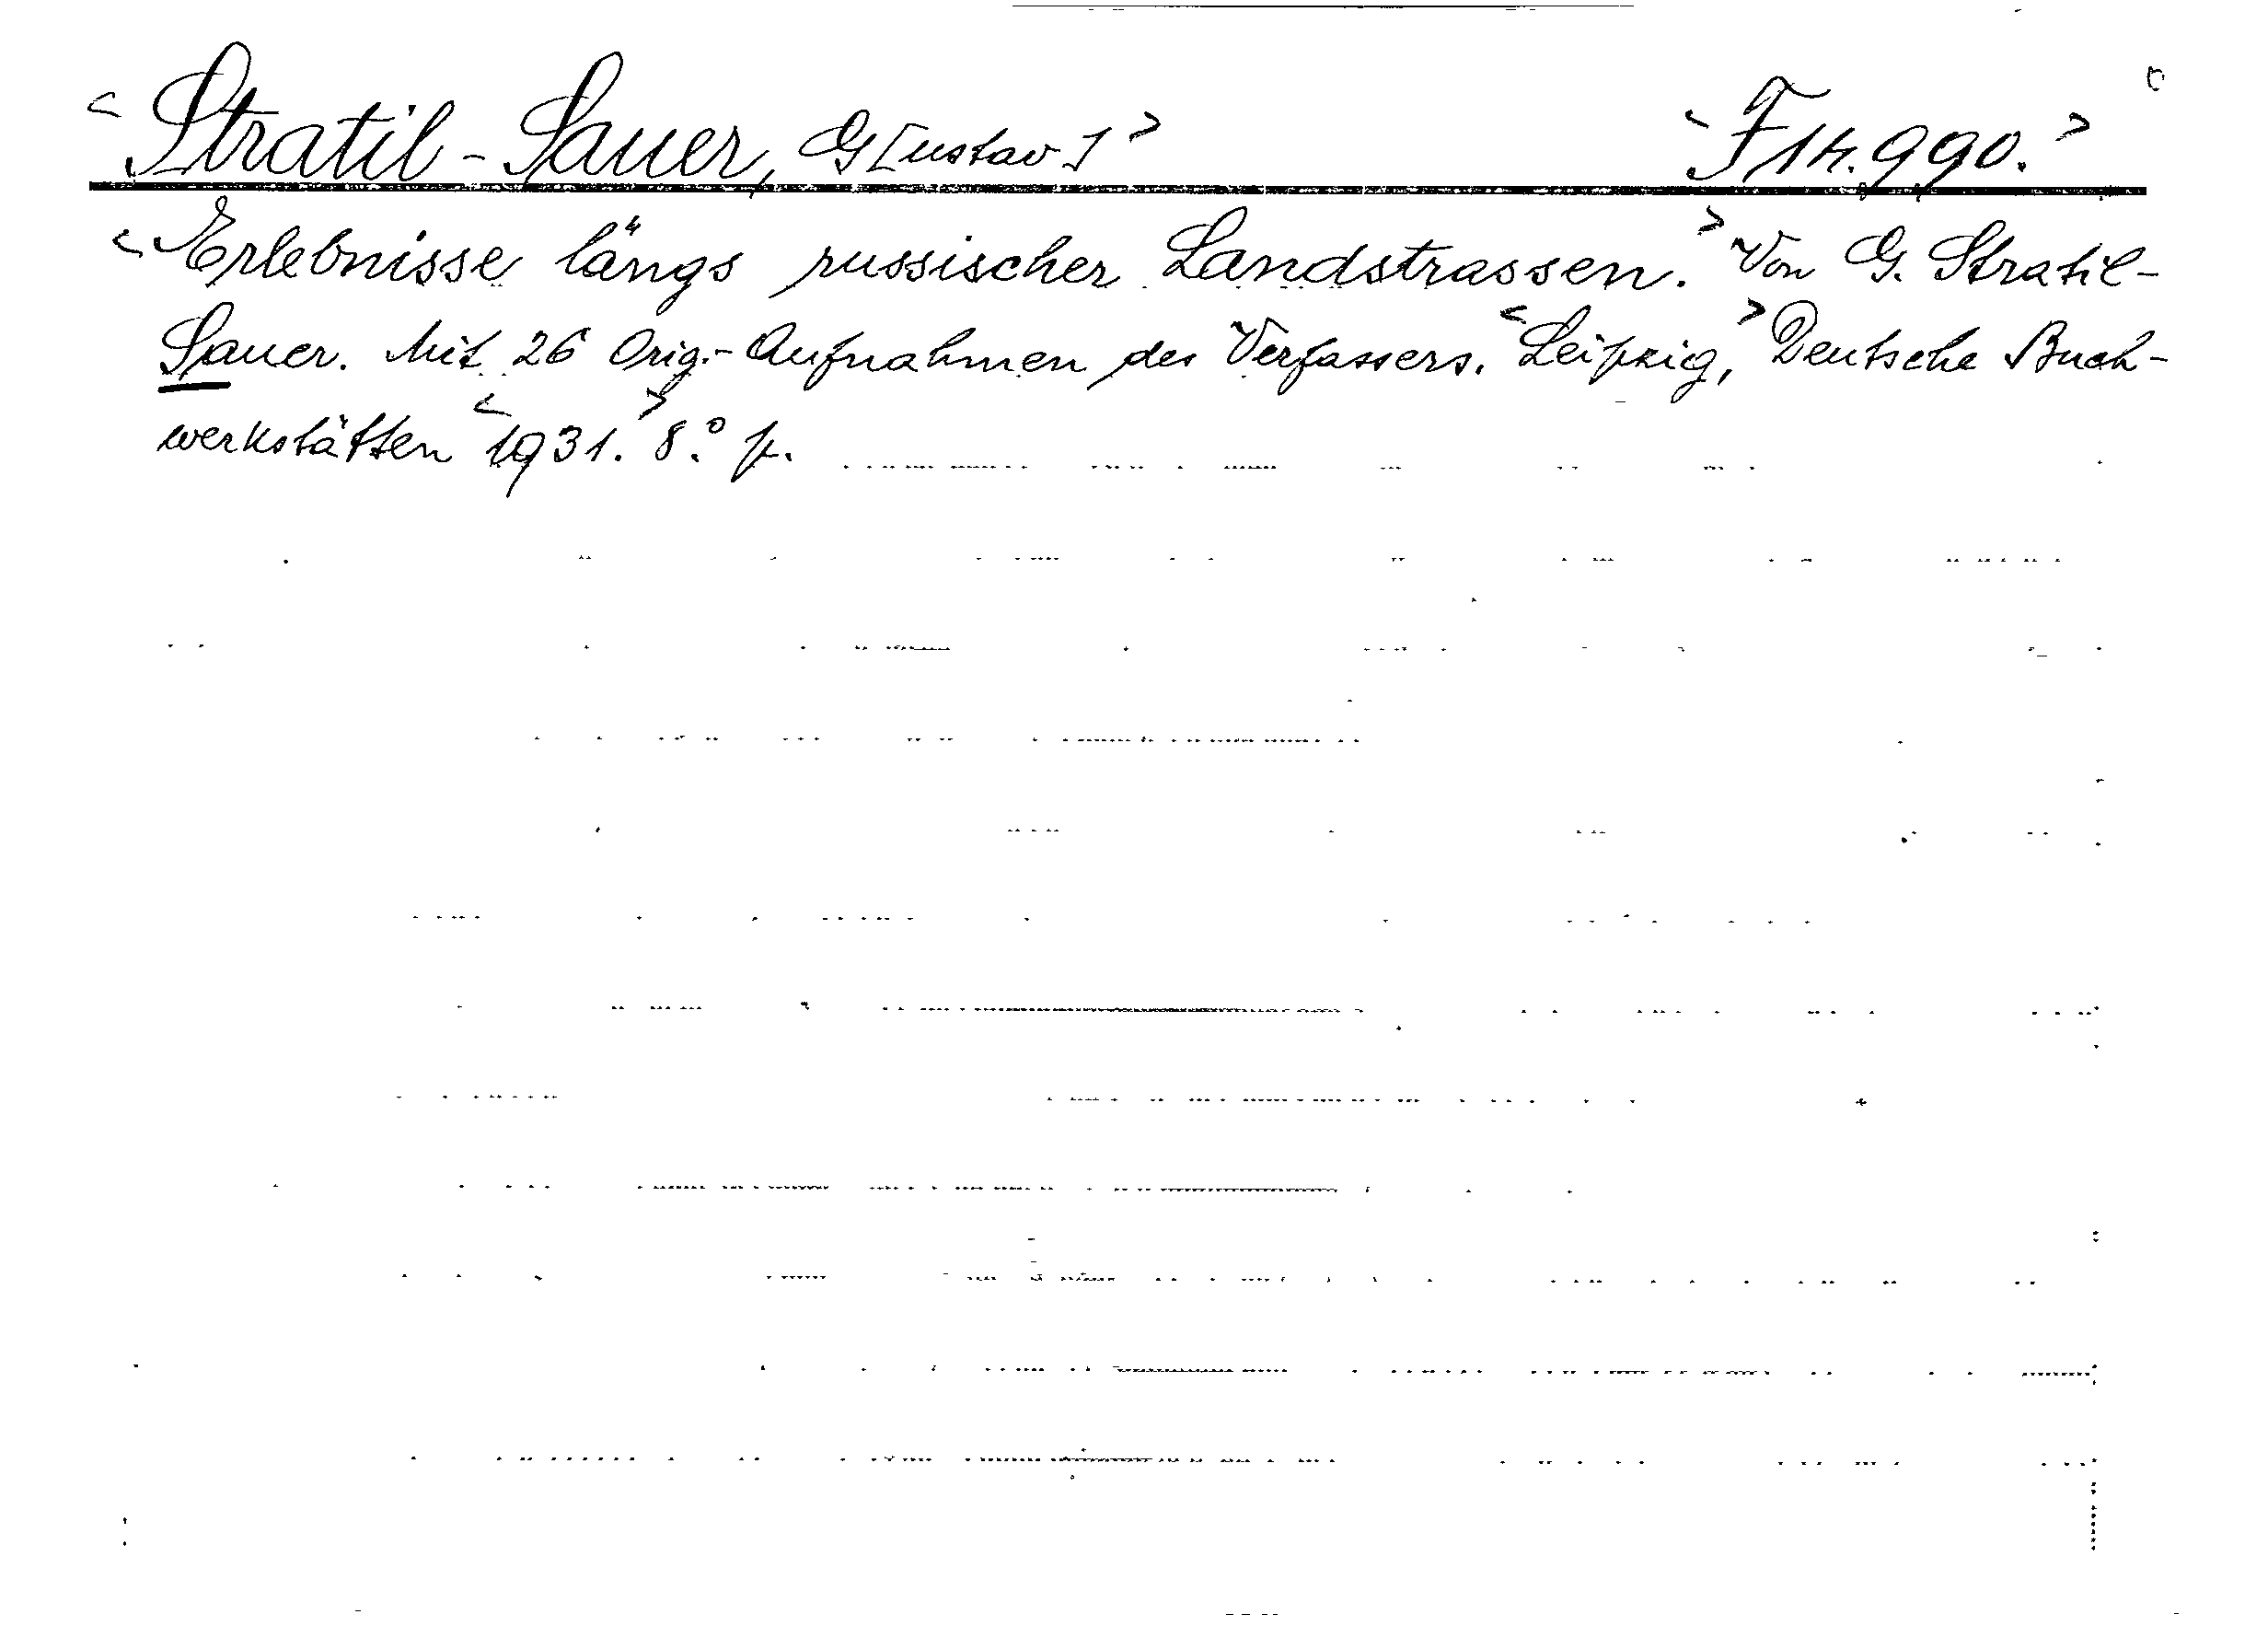 <Stratil-Sauer, G[ustav]> <F 14.990.>
<Erlebnisse längs russischer Landstrassen.> Von G. Stratil-
Sauer. Mit 26 Orig.-Aufnahmen des Verfassers. <Leipzig,> Deutsche Buch-
werkstätten <1931.> 8.° p.